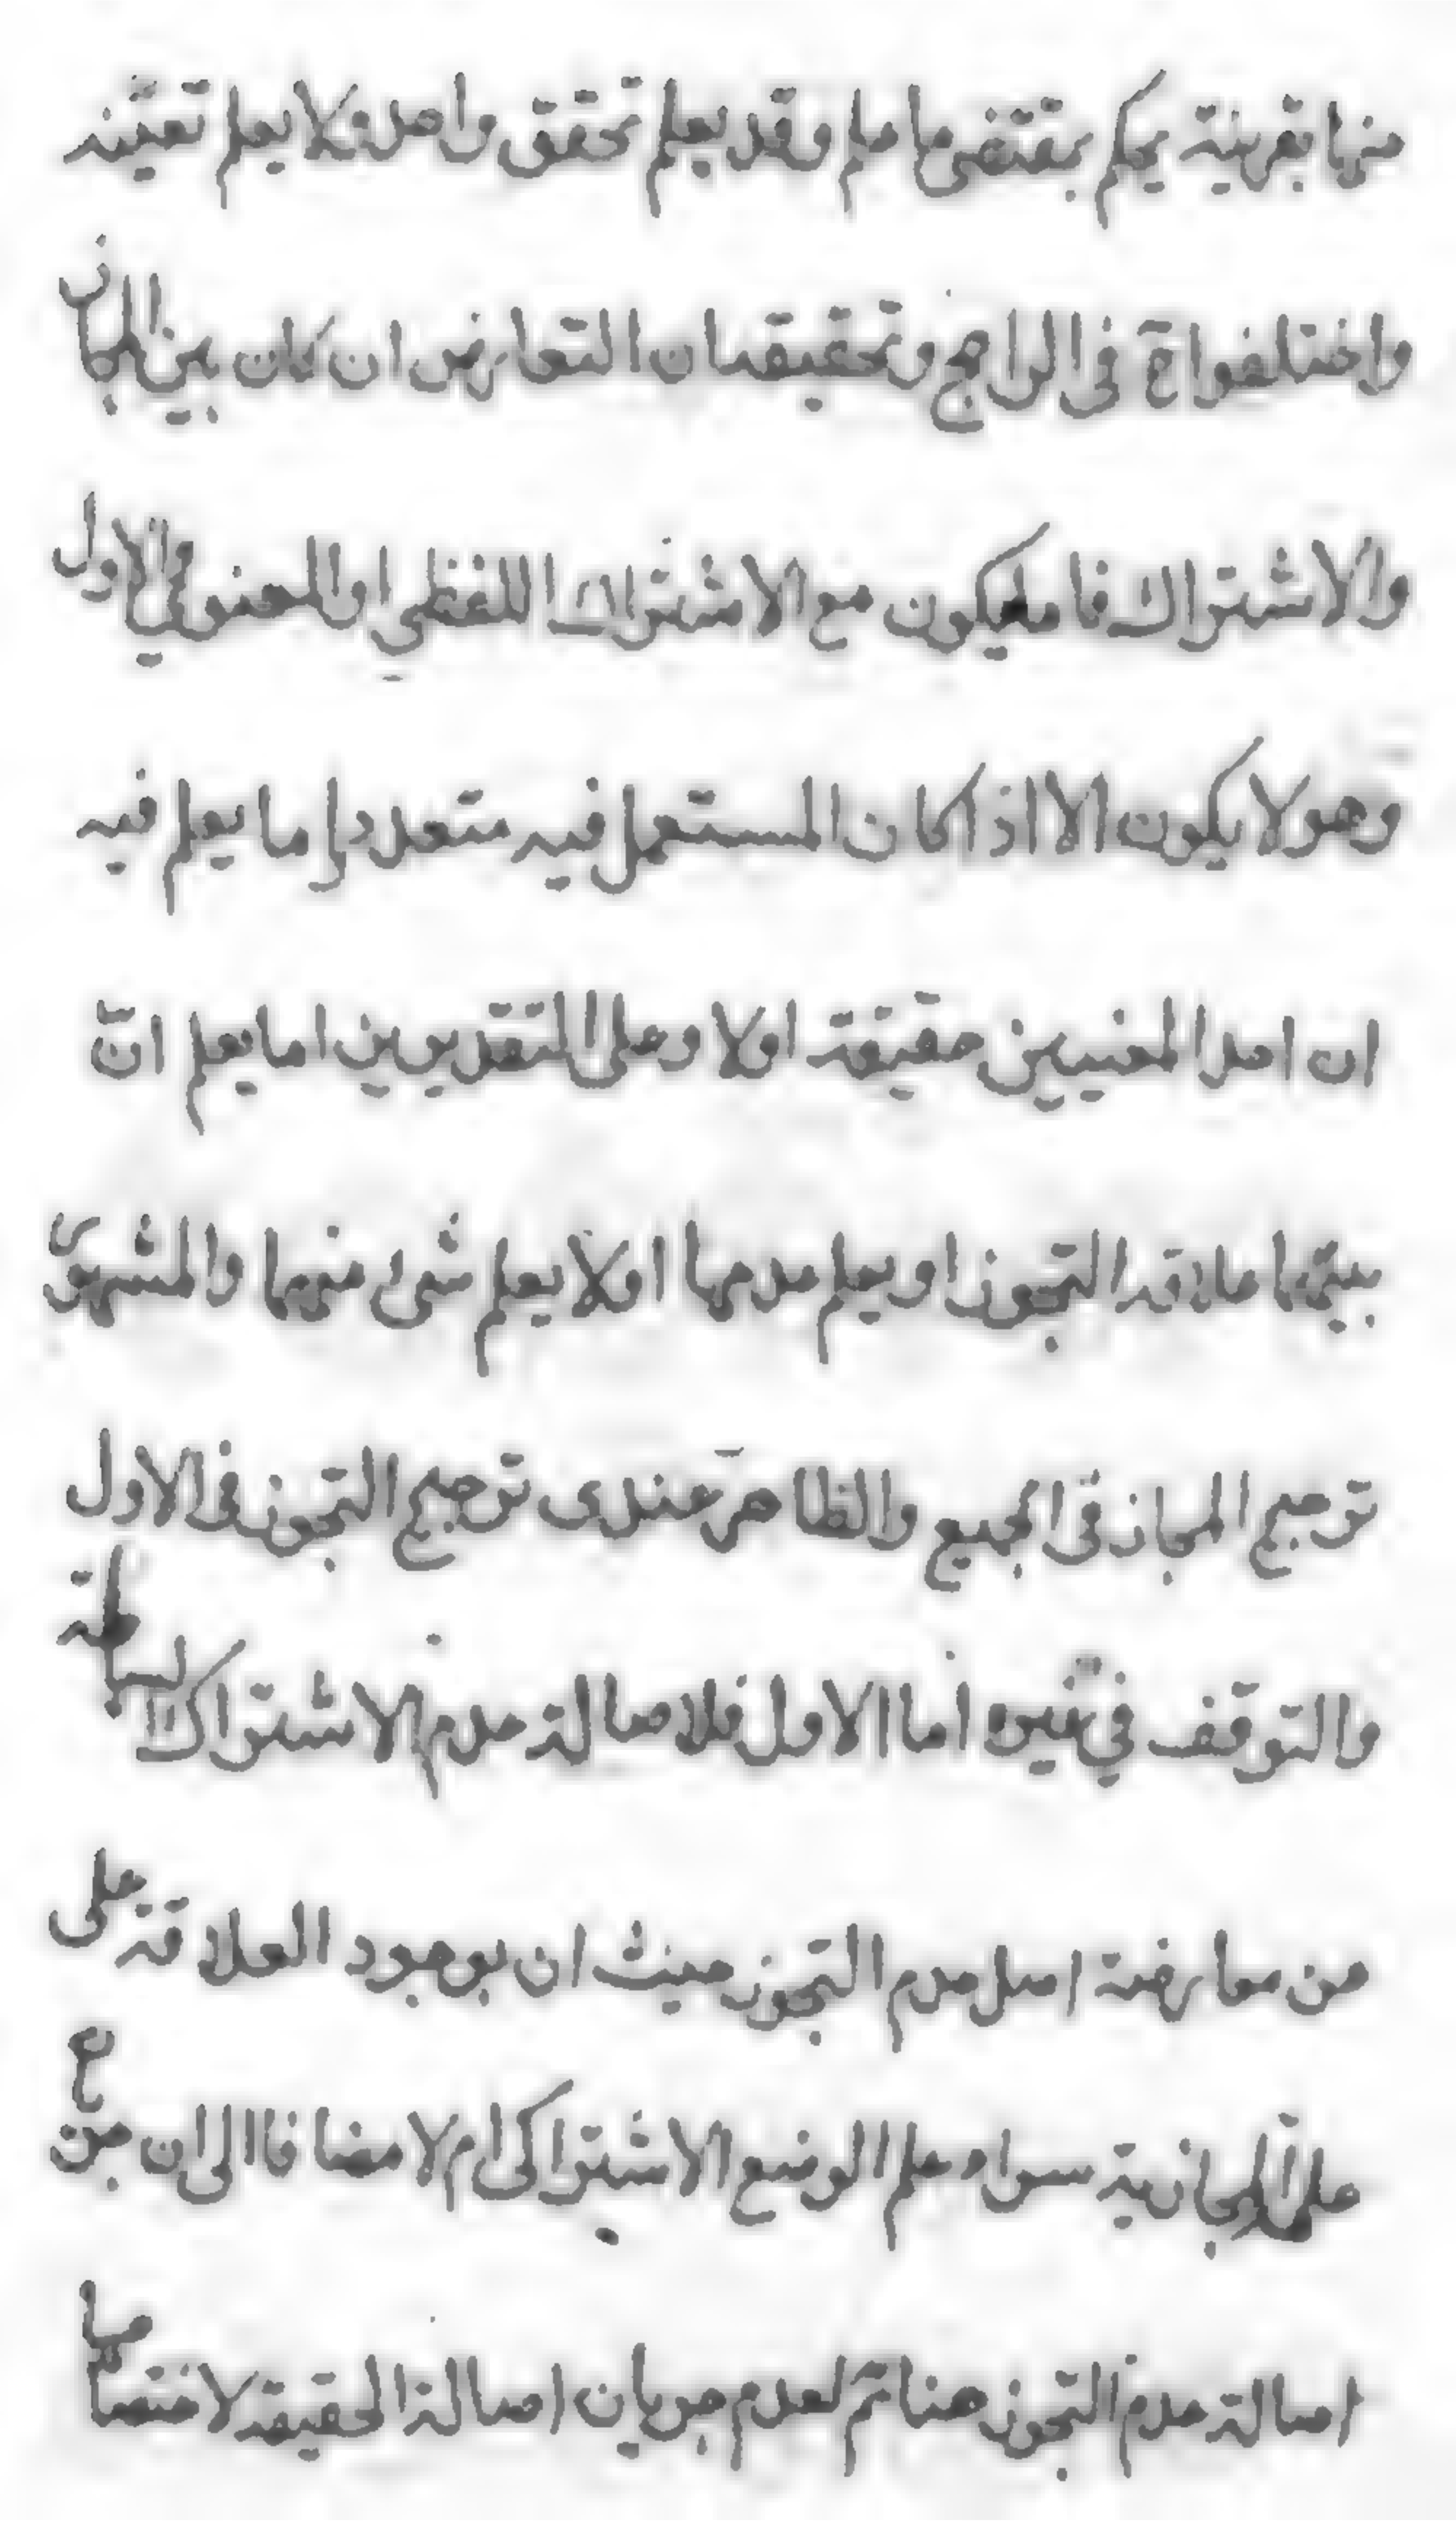 منها بقرينة يحكم بمقتضى ما علم وقد يعلم تحقق واحد ولا يعلم تعينه
واختلفوا ح في الراجح وتحقيقه ان التعارض ان كان بين المجاز
والاشتراك فاما يكون مع الاشتراك اللفظي او المعنوي الاول
وهو لا يكون الا اذا كان المستعمل فيه متعددا اما يعلم فيه
ان احد المعنيين حقيقة اولا وعلى التقديرين اما يعلم انّ
بينهما علاقة التجوز او يعلم عدمها اولا يعلم شئ منهما والمشهور
ترجيح المجاز في الجميع والظاهر عندى ترجيح التجوز في الاول
والتوقف في غيره اما الاول فلاصالة عدم الاشتراك السالمة
من معارضة اصل عدم التجوز حيث ان بوجود العلاقة على
المجازية سواء علم الوضع الاشتراكى ام لا مضافا الى ان
اصالة عدم التجوز هنا ثم لعدم جريان اصالة الحقيقة لاختصاصها